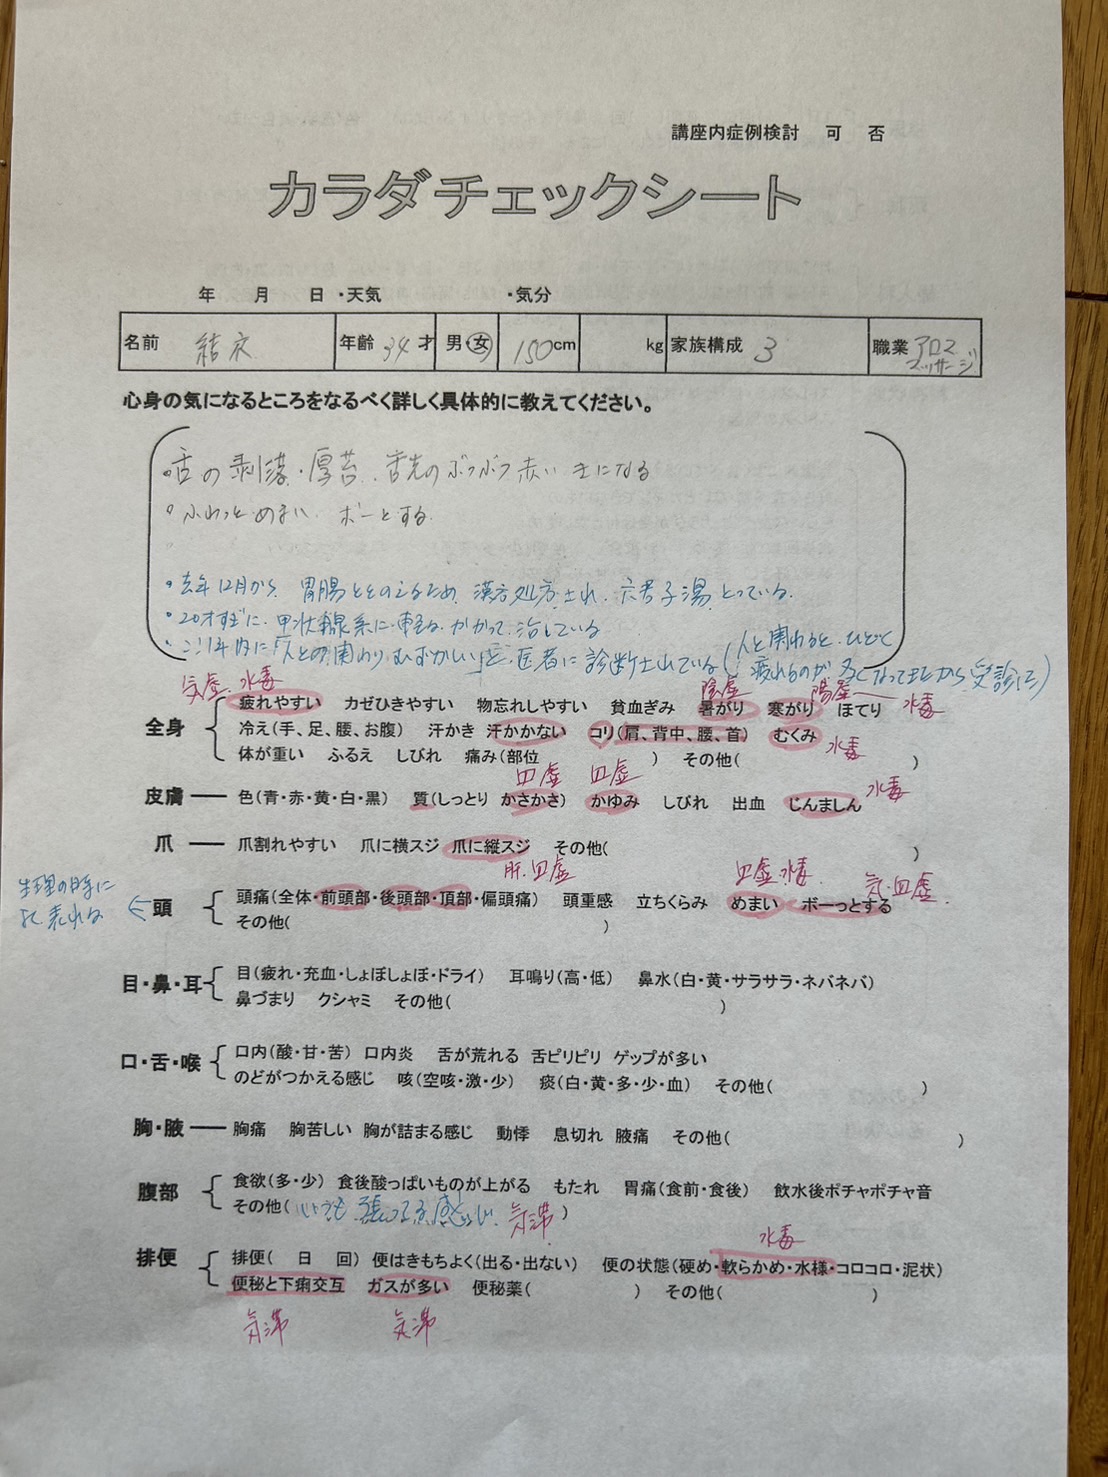 講座内症例検討 可 否
カラダチェックシート
年 月 日 ・天気 ・気分
名前 結衣 年齢 34 才 男・女 150cm kg 家族構成 3 職業 アロママッサージ
心身の気になるところをなるべく詳しく具体的に教えてください。
・舌の剥落・厚苔、舌先のボツボツ赤い 気になる
・ふわっと めまい ボーとする
・去年12月から 胃腸ととのえるため、漢方処方され、六君子湯とっている。
・20才すぎに、甲状腺系に かかって、治している
・ここ1年内に「人との関わりむずかしい」と、医者に診断されている(人と関わると、ひどく
疲れるのが 多くなってきたから受診に)
気虚、水毒 陰虚 陽虚 水毒
全身 疲れやすい カゼひきやすい 物忘れしやすい 貧血ぎみ 暑がり 寒がり ほてり
冷え(手、足、腰、お腹) 汗かき 汗かかない コリ(肩、背中、腰、首) むくみ
水毒
体が重い ふるえ しびれ 痛み(部位 ) その他( )
血虚 血虚 水毒
皮膚 ── 色(青・赤・黄・白・黒) 質(しっとり かさかさ) かゆみ しびれ 出血 じんましん
爪 ── 爪割れやすい 爪に横スジ 爪に縦スジ その他( )
肝・血虚 血虚 水毒 気・血虚
生理の時に
よく表れる
頭 頭痛(全体・前頭部・後頭部・頂部・偏頭痛) 頭重感 立ちくらみ めまい ボーっとする
その他( )
目・鼻・耳 目(疲れ・充血・しょぼしょぼ・ドライ) 耳鳴り(高・低) 鼻水(白・黄・サラサラ・ネバネバ)
鼻づまり クシャミ その他( )
口・舌・喉 口内(酸・甘・苦) 口内炎 舌が荒れる 舌ピリピリ ゲップが多い
のどがつかえる感じ 咳(空咳・激・少) 痰(白・黄・多・少・血) その他( )
胸・腋 ── 胸痛 胸苦しい 胸が詰まる感じ 動悸 息切れ 腋痛 その他( )
腹部 食欲(多・少) 食後酸っぱいものが上がる もたれ 胃痛(食前・食後) 飲水後ボチャボチャ音
その他( いつも 張ってる感じ 気滞 )
水毒
排便 排便( 日 回) 便はきもちよく(出る・出ない) 便の状態(硬め・軟らかめ・水様・コロコロ・泥状)
便秘と下痢交互 ガスが多い 便秘薬( ) その他( )
気滞 気滞